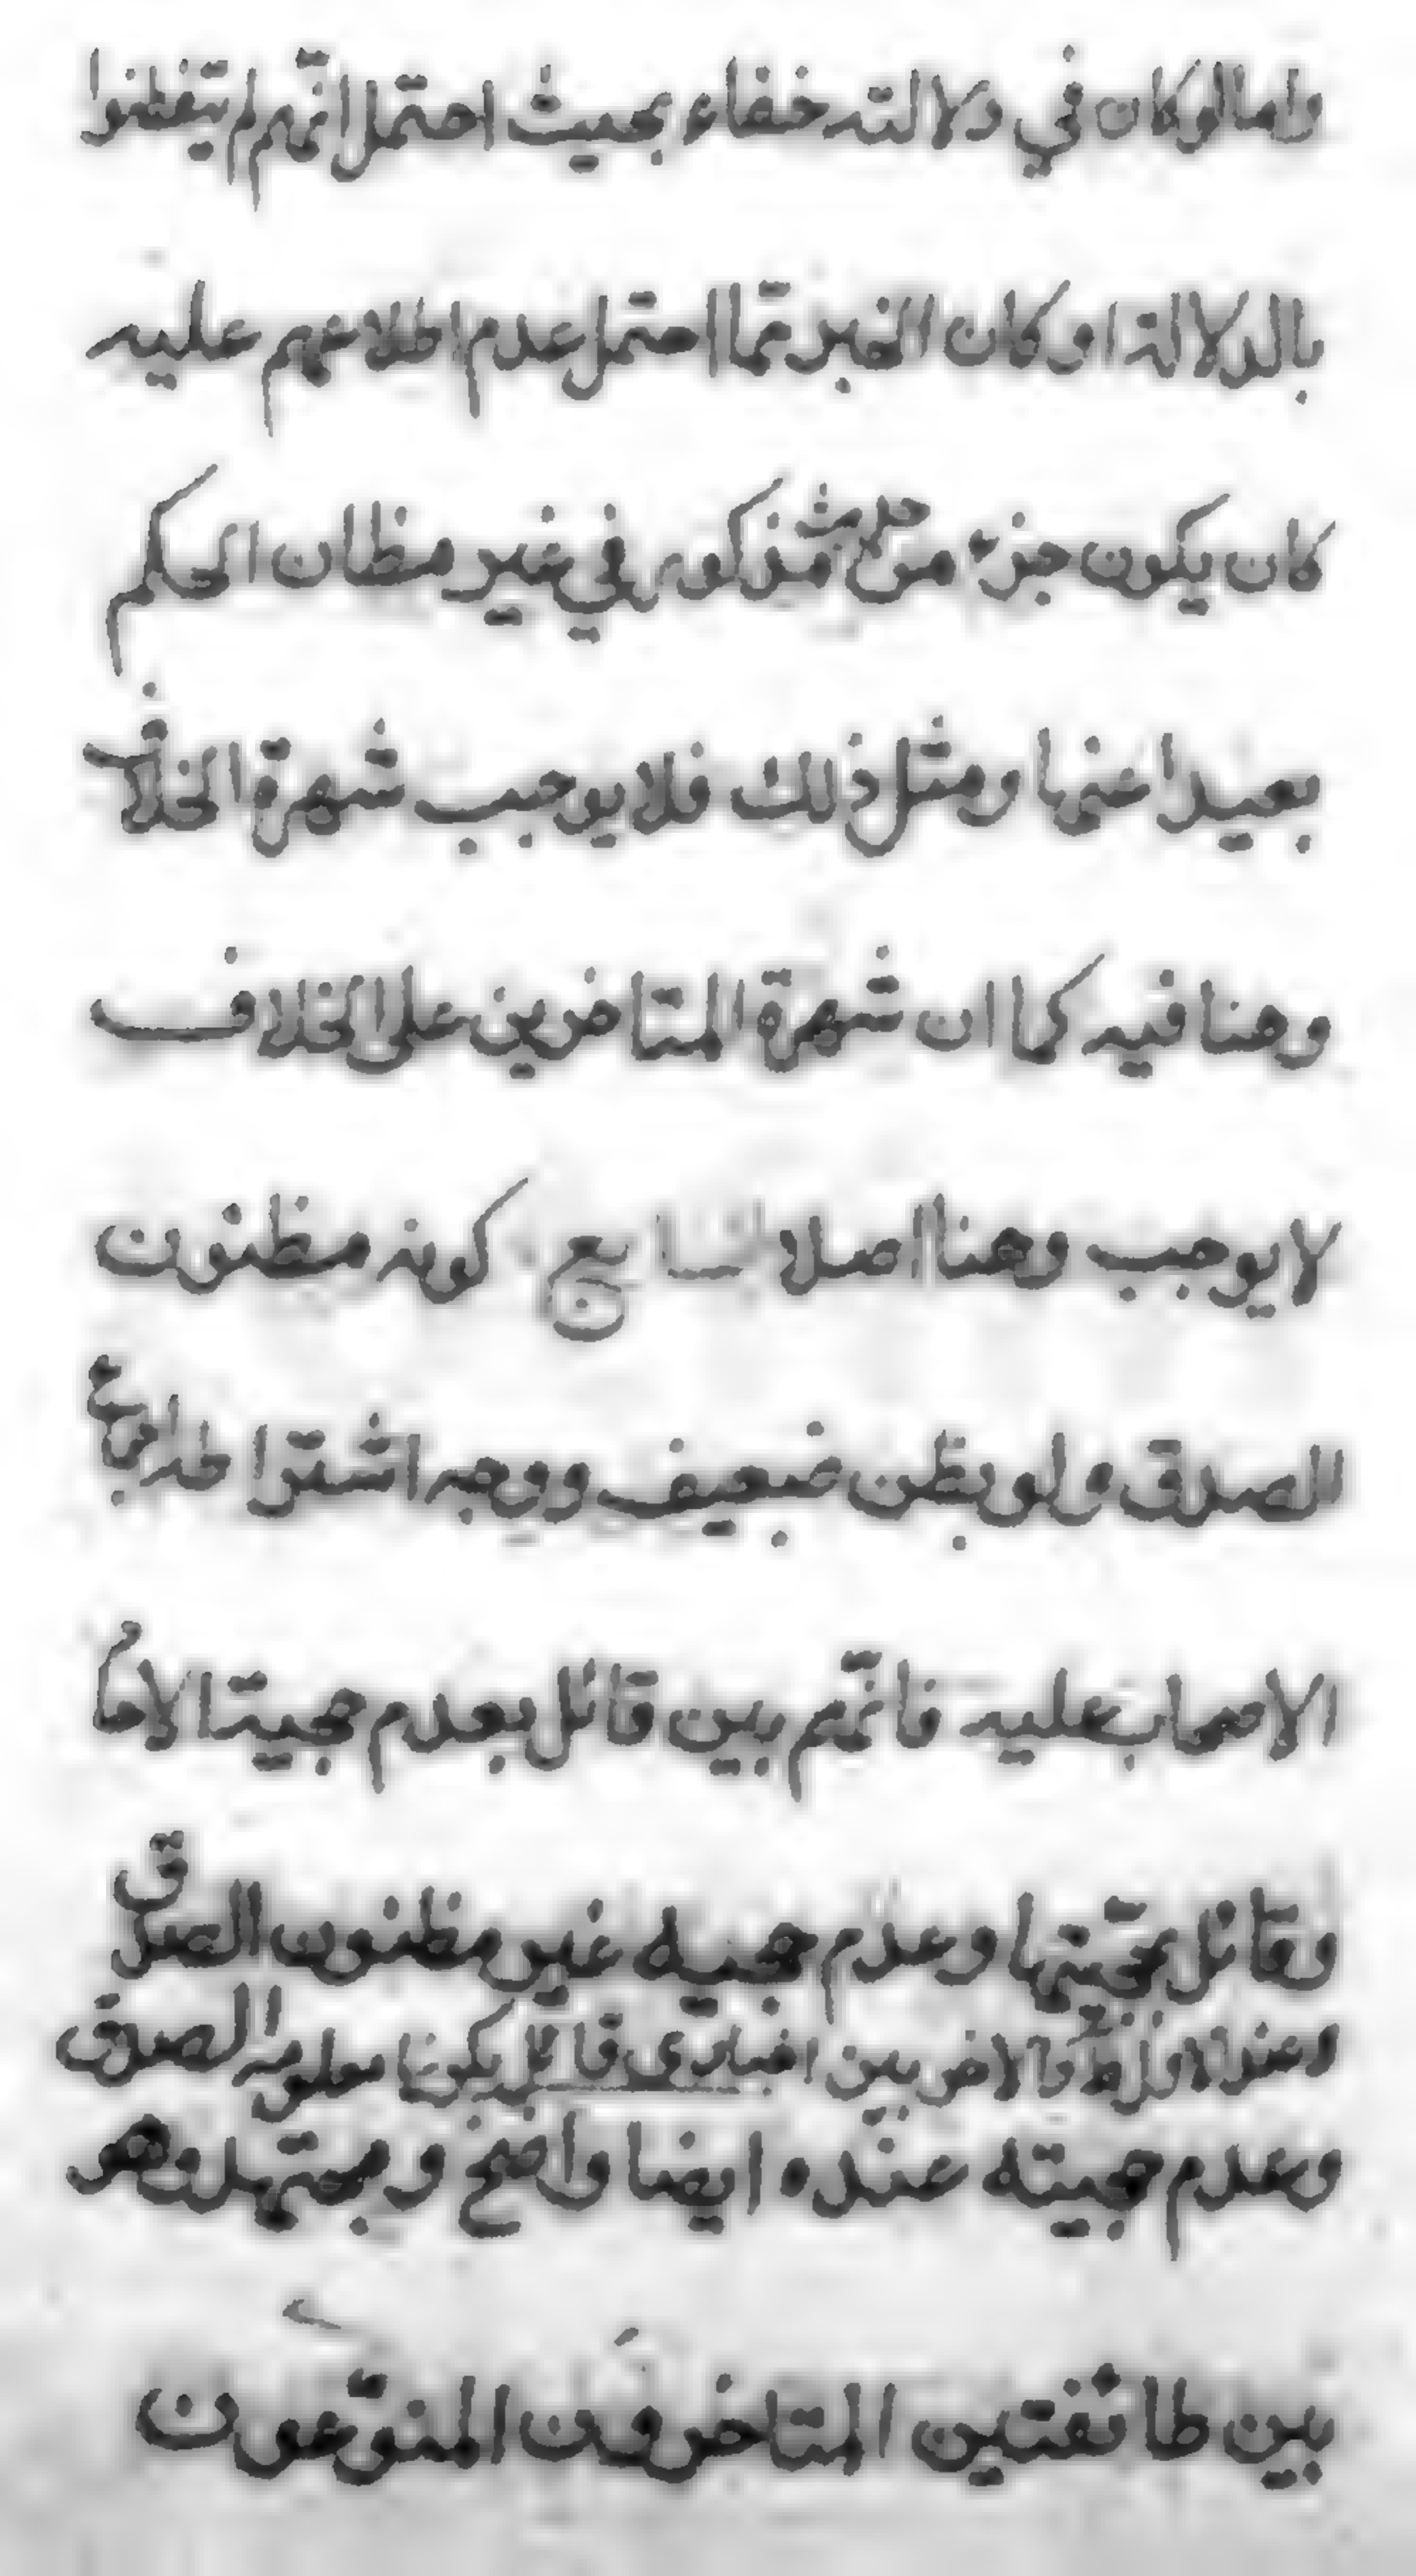 واما لو كان في دلالته خفاء بحيث احتمل انّهم لم يتفطنوا
بالدلالة او كان الخبر ممّا احتمل عدم اطلاعهم عليه
كان يكون جزء من حديث مذكور في غير مظان الحكم
بعيدا عنها ومثل ذلك فلا يوجب شهرة الخلاف
وهنا فيه كما ان شهرة المتاخرين على الخلاف
لا يوجب وهنا اصلا السابع كونه مظنون
الصدق ولو بظن ضعيف ووجه اشتراط اجماع
الاصحاب عليه فانّهم بين قائل بعدم حجية الاحاد
وقائل بحجّيتها وعدم حجيه غير مظنون الصدق
وعند الاول ظ فالاخر بين اخبارى قائل بكونها معلومه الصدق
وعدم حجيته عنده ايضا واضح ومجتهد وهو
بين طائفتين المتاخرون المنوّعون